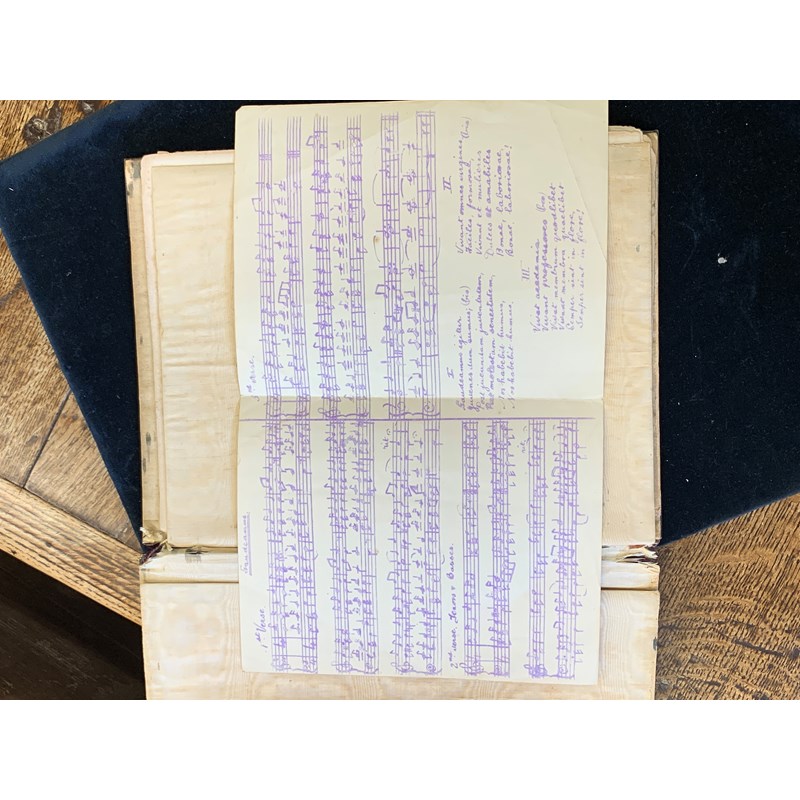 Gaudeamus
1st Verse.
2nd verse, Tenors & Basses.
3rd verse.
I
Gaudeamus igitur
juvenes dum sumus, (bis)
Post jucundam juventutem,
Post molestam senectutem,
Nos habebit humus,
Nos habebit humus.
II
Vivant omnes virgines, (bis)
Faciles, formosae,
Vivant et mulieres
Dulces et amabiles
Bonae, laboriosae,
Bonae, laboriosae!
III
Vivat academia
Vivant professores (bis)
Vivat membrum quodlibet
Vivant membra quaelibet
Semper sint in flore,
Semper sint in flore!